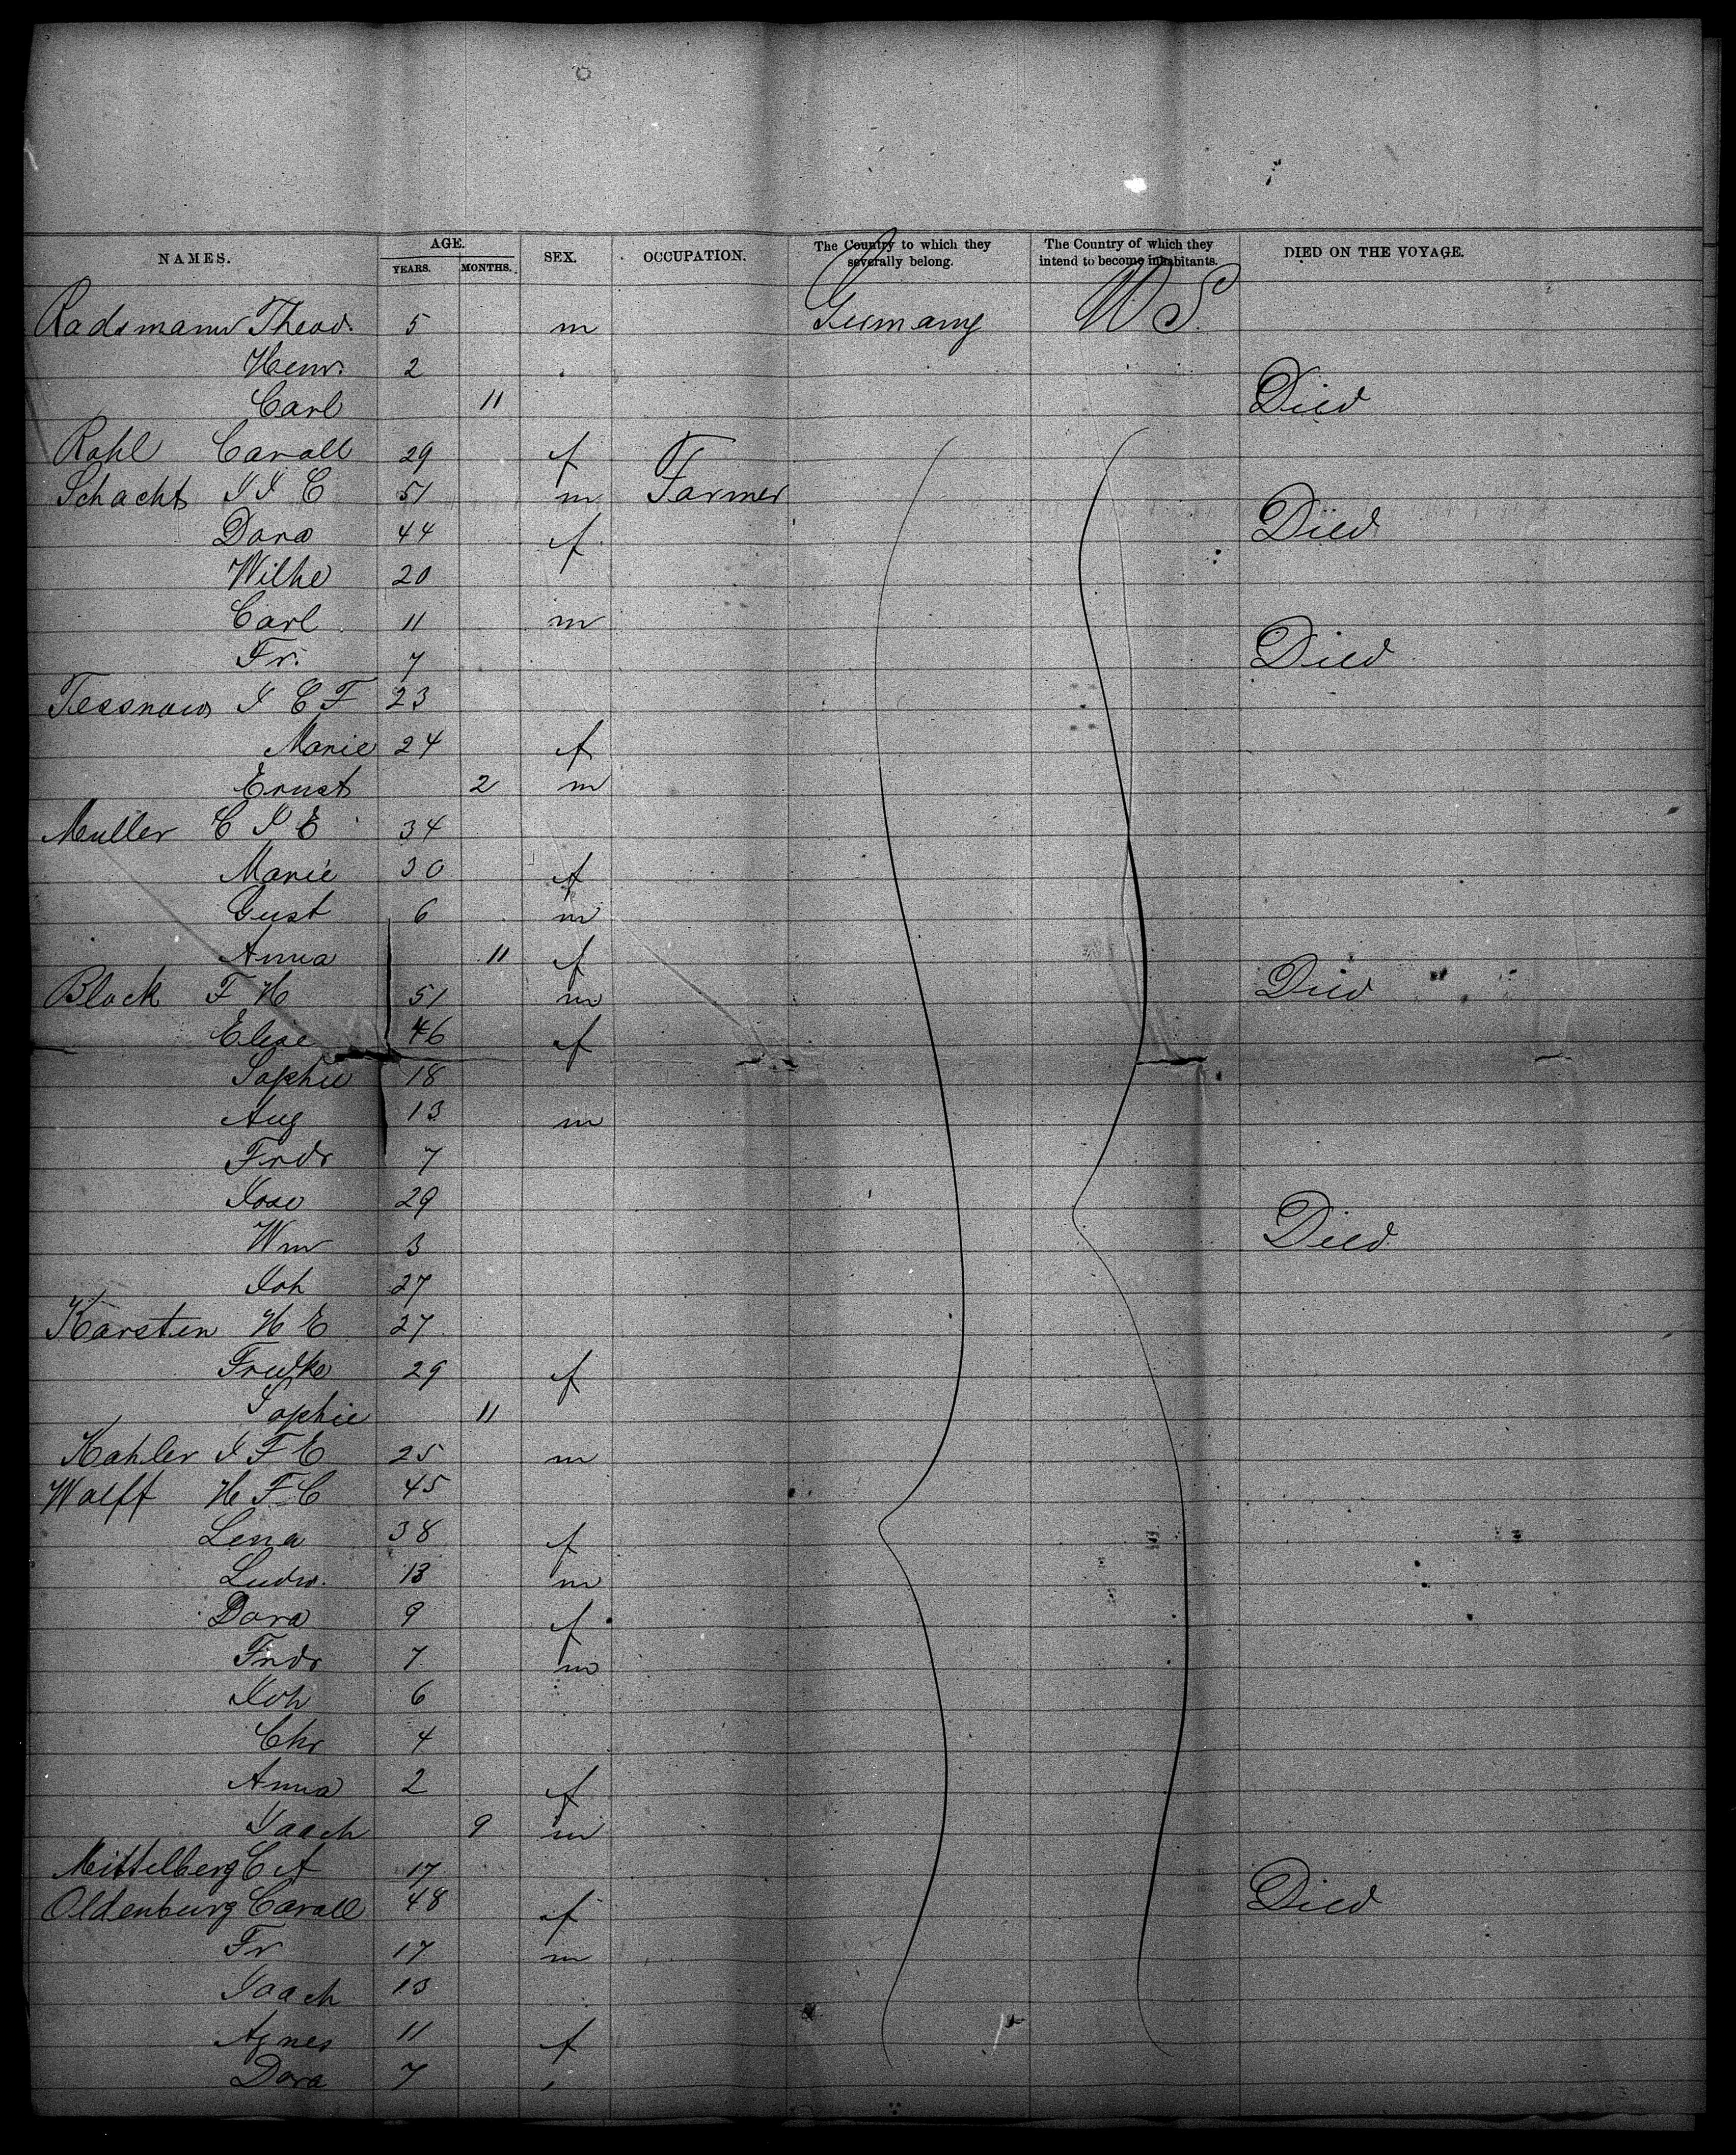 NAMES. AGE. YEARS. MONTHS. SEX. OCCUPATION. The Country to which they severally belong. The Country of which they intend to become inhabitants. DIED ON THE VOYAGE.
Radsmann Theod. 5 m Germany U S.
Henr. 2
Carl 11 Died
Rohl Caroll 29 f
Schacht J J C 51 m Farmer
Dora 44 f Died
Wilhe 20
Carl 11 m
Fr. 7 Died
Tessnow J C F 23
Marie 24 f
Ernst 2 m
Muller C J E 34
Marie 30 f
Gust 6 m
Anna 11 f
Block F H 51 m Died
Elise 46 f
Sophie 18
Aug 13 m
Fridr 7
29
Wm 3 Died
Joh 27
Karsten H E 27
Friedke 29 f
Sophie 11
Kahler J F E 25 m
Wolff H F C 45
Lena 38 f
Ludw. 13 m
Dora 9 f
Fridr 7 m
Joh 6
Chr 4
Anna 2 f
Joach 9 m
Mittelberg C A 17
Oldenburg Caroll 48 f Died
Fr 17 m
Joach 13
Agnes 11 f
Dora 7